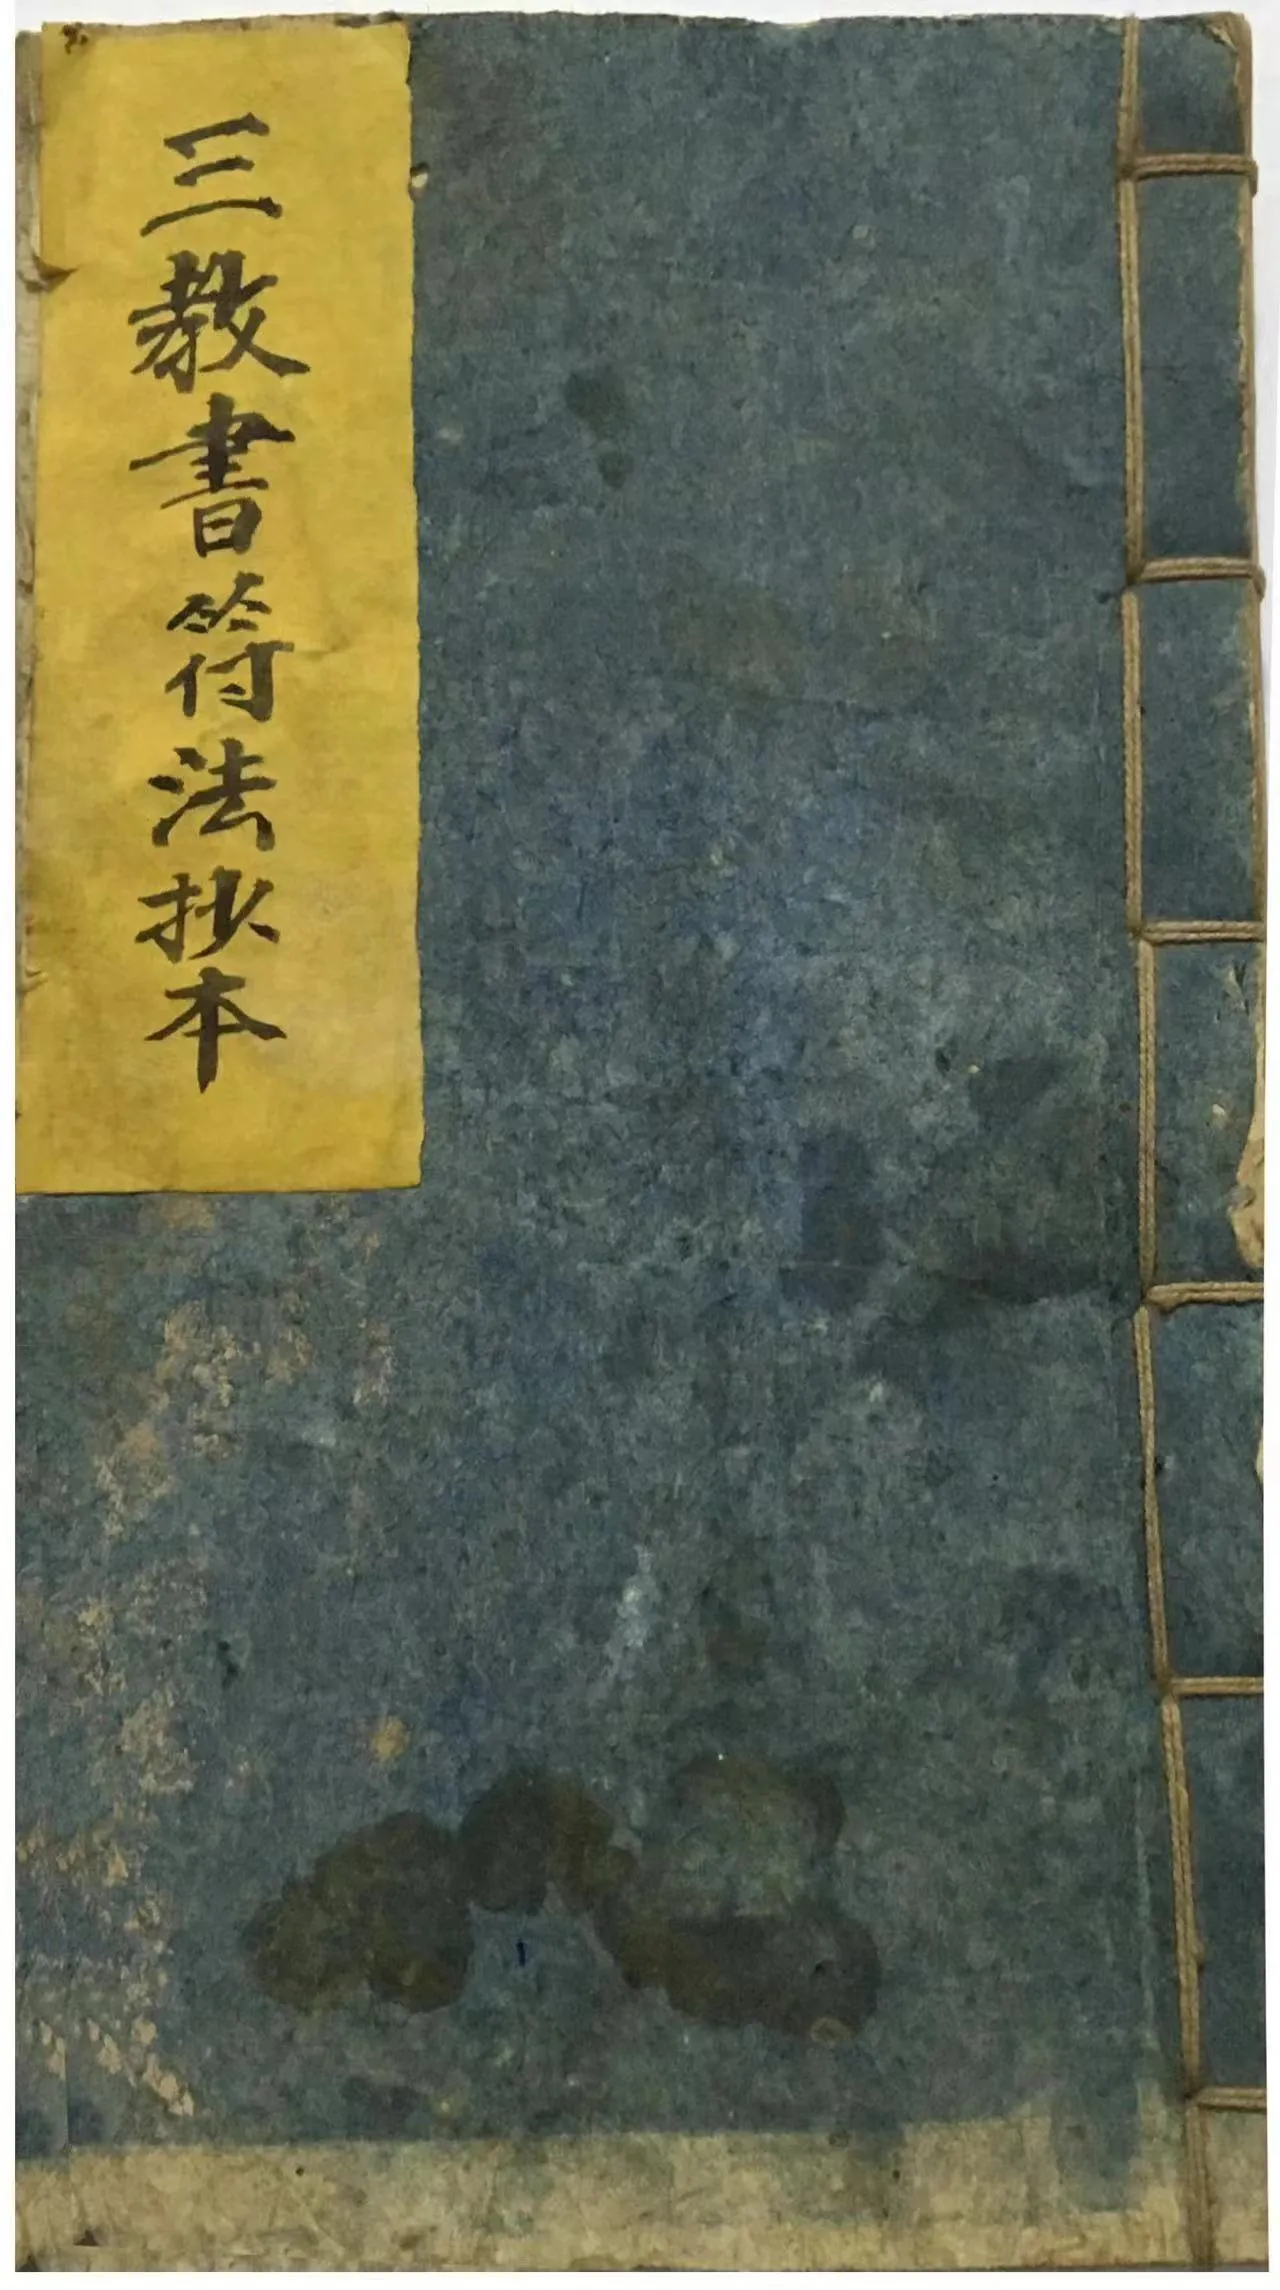 三教書符法抄本